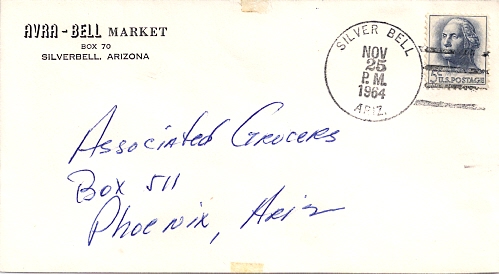 AVRA-BELL MARKET
BOX 70
SILVERBELL, ARIZONA
SILVER BELL
NOV
25
P.M.
1964
ARIZ.
5¢ U.S. POSTAGE
Associated Grocers
Box 511
Phoenix, Ariz